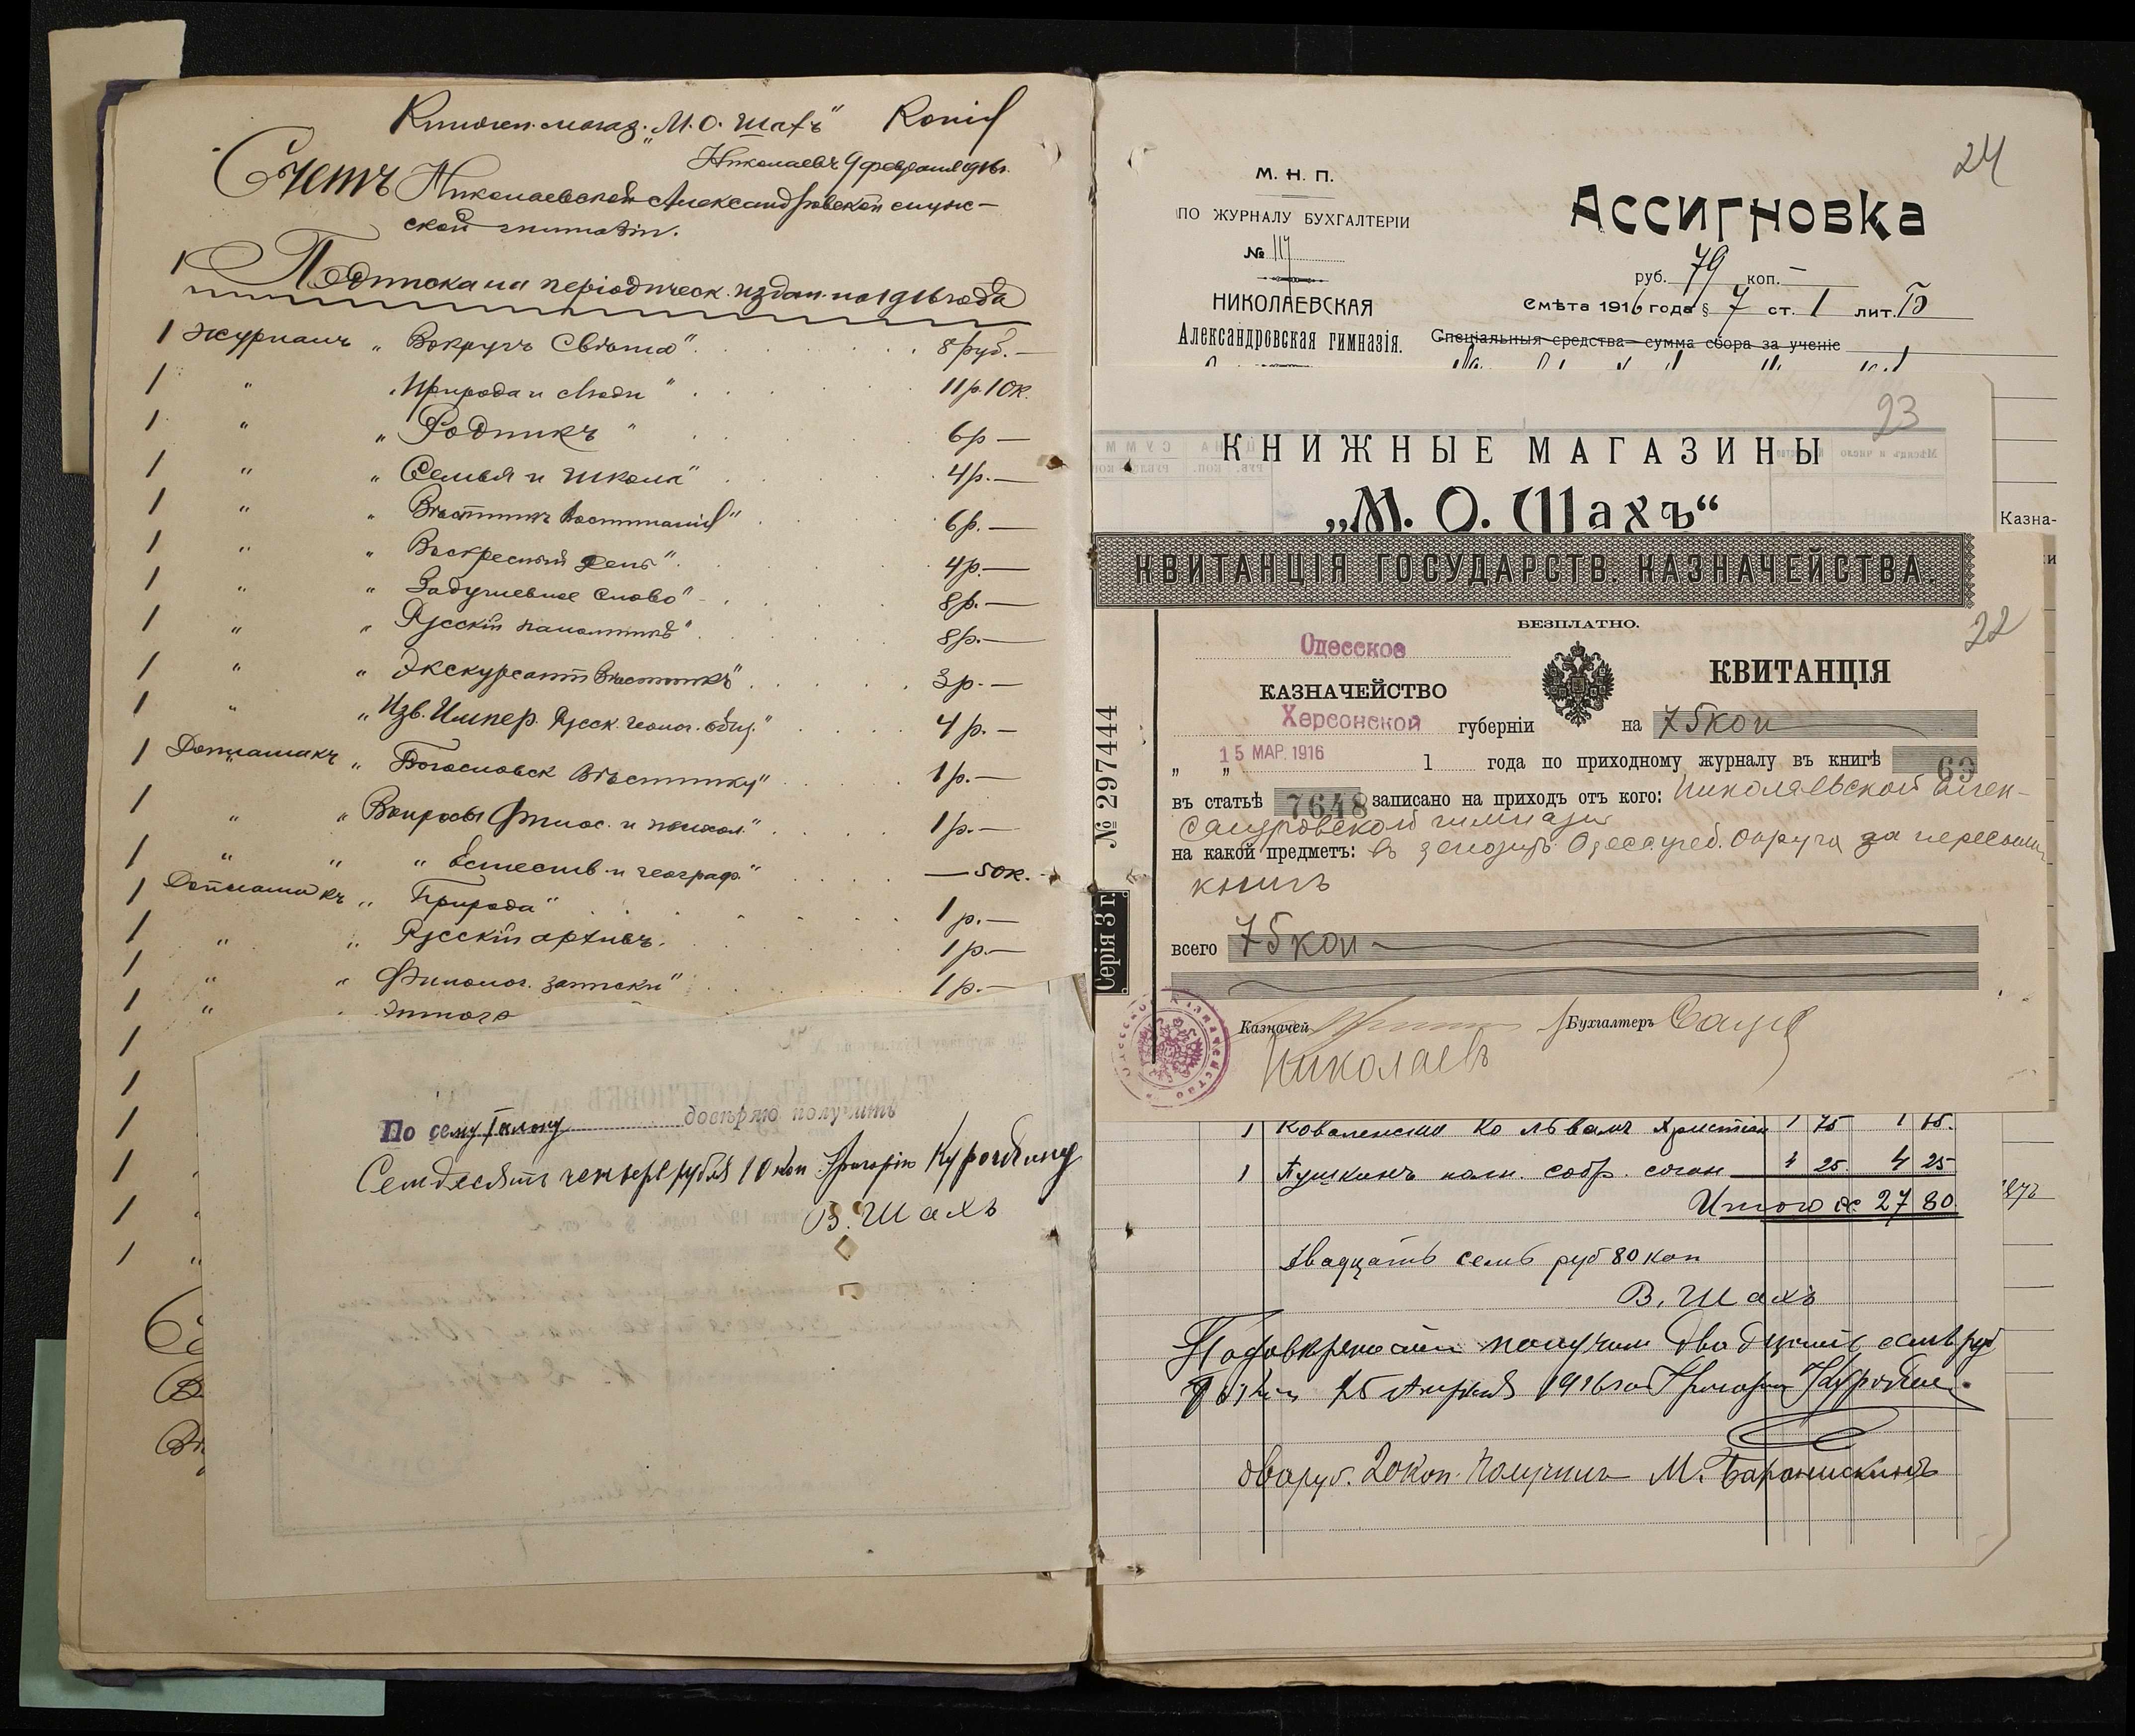 Книжн. магаз. „М. О. Шахъ“ Копія
Николаевъ 9 февраля 1916 г.
Счетъ Николаевской Александровской мужс-
ской гимназіи.
1 Подписка на періодическ. издан. на 1916 года
1 журналъ „Вокругъ Свѣта“ 8 руб. —
1 „ „Природа и Люди“ 11 р. 10 к.
1 „ „Родникъ“ 6 р —
1 „ „Семья и Школа“ 4 р. —
1 „ „Вѣстникъ Воспитанія“ 6 р. —
1 „ „Воскресный День“ 4 р. —
1 „ „Задушевное Слово“ 8 р. —
1 „ „Русскій паломникъ“ 8 р. —
1 „ „Экскурсант. Вѣстникъ“ 3 р. —
1 „ „Изв. Импер. Русск. геогр. общ.“ 4 р. —
1 Доплата къ „Богословск Вѣстнику“ 1 р. —
1 „ „Вопросы Филос. и психол.“ 1 р. —
1 „ „ „Естеств. и географ.“ — 50 к.
1 Доплата къ „Природа“ 1 р. —
1 „ „Русскій архивъ. 1 р. —
1 „ „Филолог. записки“ 1 р. —
1 „
1
1
1
1
1
1 „
По сему талону довѣряю получить
Семдесятъ четыре рубля 10 коп Григорію Курочкину
В. Шахъ
24
М. Н. П.
ПО ЖУРНАЛУ БУХГАЛТЕРІИ
№ 117
НИКОЛАЕВСКАЯ
Александровская гимназія.
Ассигновка
руб. 79 коп. —
Смѣта 1916 года § 7 ст. 1 лит. Б
Спеціальныя средства — сумма сбора за ученіе
Казна-
23
КНИЖНЫЕ МАГАЗИНЫ
„М. О. Шахъ“
КВИТАНЦІЯ ГОСУДАРСТВ. КАЗНАЧЕЙСТВА.
БЕЗПЛАТНО.
22
Одесское
КАЗНАЧЕЙСТВО
Херсонской губерніи
КВИТАНЦІЯ
на 75 коп
15 МАР. 1916
„ „ 1 года по приходному журналу въ книгѣ 69
въ статьѣ 7648 записано на приходъ отъ кого: Николаевской Алек-
сандровской гимназіи
на какой предметъ: въ депозитъ Одесс. учеб. Округа за пересылку
книгъ
всего 75 коп
Казначей
Бухгалтеръ
Николаевъ
№ 297444
Серія 3 г.
1 Коваленская Ко львамъ Христіан 1 75 1 75.
1 Пушкинъ полн. собр. сочин 4 25 4 25
Итого 27 80
Двадцать семь руб 80 коп
В. Шахъ
получилъ двадцать семь руб
80 коп 15 Апрѣля 1916 года Григорій Курочкин.
два руб. 20 коп. Получилъ М.